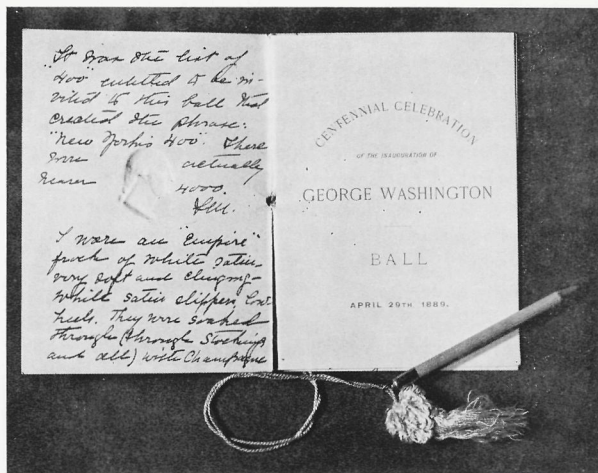 "It was the list of
400" entitled to be in-
vited to this ball that
created the phrase:
"New York's 400". There
were actually
nearer 4000.
I wore an "Empire"
frock of white satin
very soft and clinging-
white satin slippers, low
heels. They were soaked
through (through stockings
and all) with Champagne
CENTENNIAL CELEBRATION
OF THE INAUGURATION OF
GEORGE WASHINGTON
BALL
APRIL 29TH 1889.